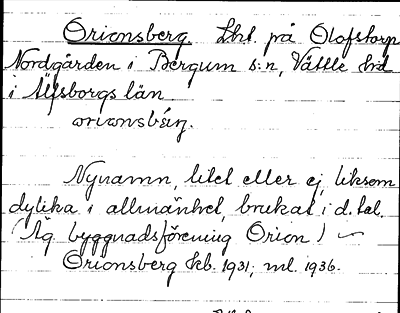 Orionsberg. Lht på Olofstorp
Nordgården i Bergum s:n, Vättle hd
i Älfsborgs län
orionsbärj.
Nynamn, litet eller ej, liksom
dylika i allmänhet, brukat i d. tal.
(Äg. byggnadsförening Orion)
Orionsberg kb. 1931; ml. 1936.